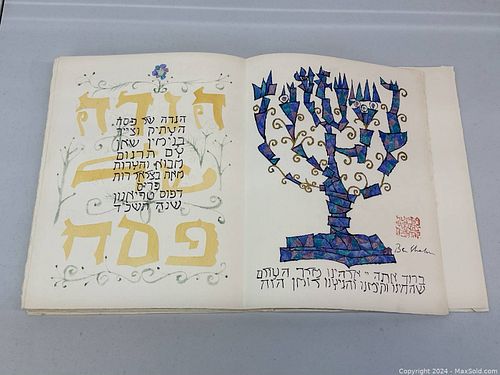 הגדה
של
פסח
הגדה של פסח
העתיק וצייר
בנימין שאן
עם תרגום
מבוא והערות
מאת בצלאל רות
פריס
דפוס טריאנון
Ben Shahn
ברוך אתה יי אלהינו מלך העולם
שהחינו וקימנו והגיענו לזמן הזה
Copyright 2024 - MaxSold.com